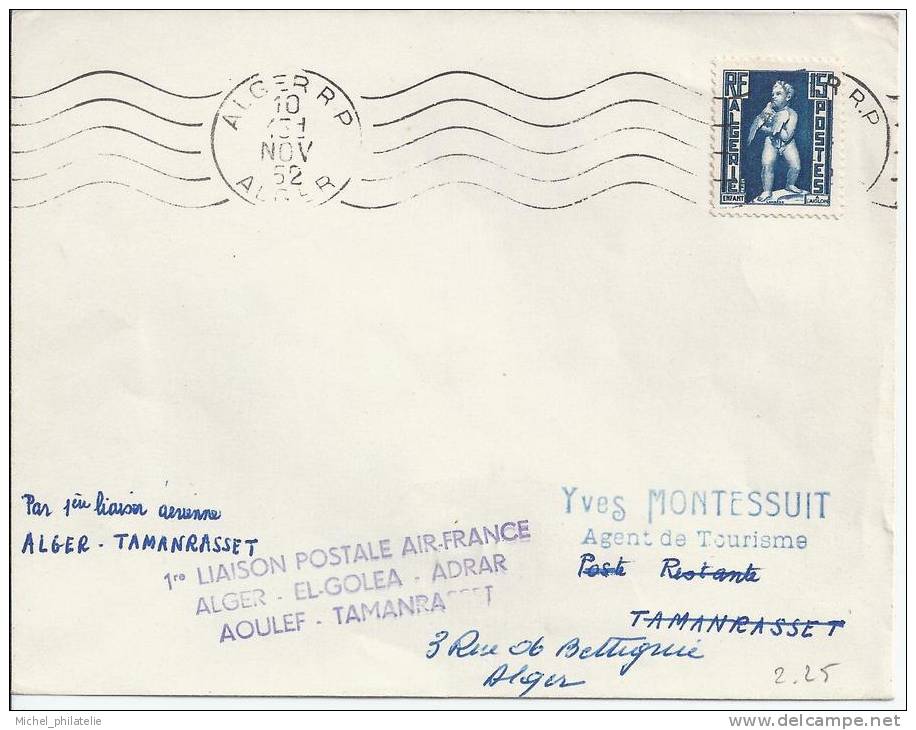 ALGER R.P
10
NOV
52
ALGER
R R.P
RF
15F
ALGERIE
POSTES
ENFANT
L'AIGLON
Par 1ère liaison aérienne
ALGER - TAMANRASSET
1re LIAISON POSTALE AIR-FRANCE
ALGER - EL-GOLEA - ADRAR
AOULEF - TAMANRASSET
Yves MONTESSUIT
Agent de Tourisme
Poste Restante
TAMANRASSET
3 Rue de Bettignie
Alger
2.25
Michel_philatelie
www.delcampe.net